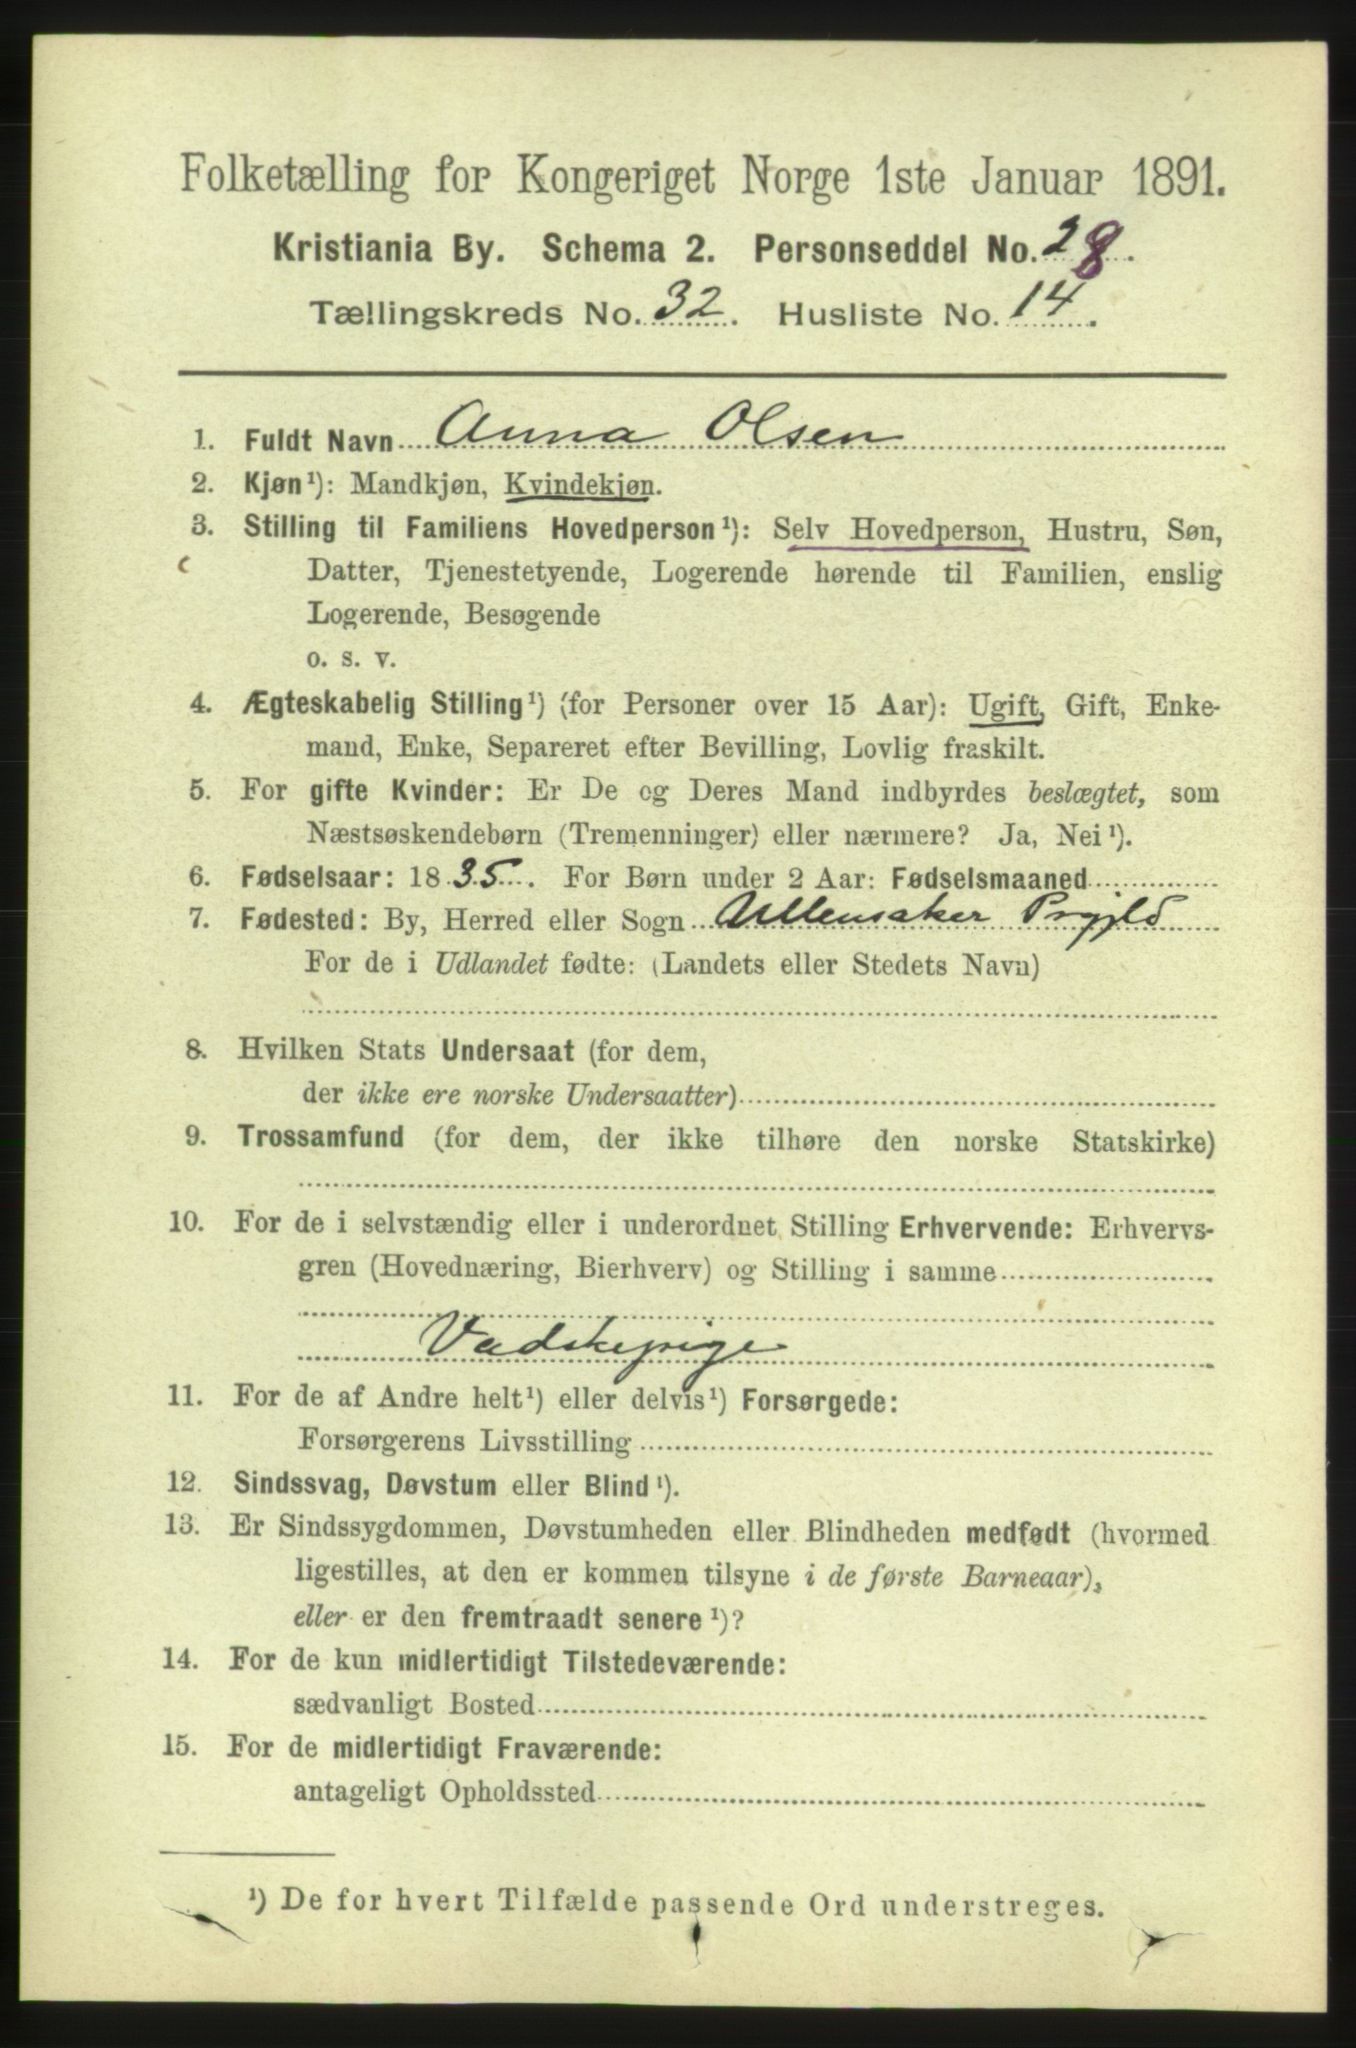 Folketælling for Kongeriget Norge 1ste Januar 1891.
Kristiania By. Schema 2. Personseddel No. 28.
Tællingskreds No. 32. Husliste No. 14.
1. Fuldt Navn Anna Olsen
2. Kjøn¹): Mandkjøn, Kvindekjøn.
3. Stilling til Familiens Hovedperson¹): Selv Hovedperson, Hustru, Søn,
Datter, Tjenestetyende, Logerende hørende til Familien, enslig
Logerende, Besøgende
o. s. v.
4. Ægteskabelig Stilling¹) (for Personer over 15 Aar): Ugift, Gift, Enke-
mand, Enke, Separeret efter Bevilling, Lovlig fraskilt.
5. For gifte Kvinder: Er De og Deres Mand indbyrdes beslægtet, som
Næstsøskendebørn (Tremenninger) eller nærmere? Ja, Nei¹).
6. Fødselsaar: 1835. For Børn under 2 Aar: Fødselsmaaned
7. Fødested: By, Herred eller Sogn Ullensaker Prgjld
For de i Udlandet fødte: (Landets eller Stedets Navn)
8. Hvilken Stats Undersaat (for dem,
der ikke ere norske Undersaatter)
9. Trossamfund (for dem, der ikke tilhøre den norske Statskirke)
10. For de i selvstændig eller i underordnet Stilling Erhvervende: Erhvervs-
gren (Hovednæring, Bierhverv) og Stilling i samme
Vadskepige
11. For de af Andre helt¹) eller delvis¹) Forsørgede:
Forsørgerens Livsstilling
12. Sindssvag, Døvstum eller Blind¹).
13. Er Sindssygdommen, Døvstumheden eller Blindheden medfødt (hvormed
ligestilles, at den er kommen tilsyne i de første Barneaar),
eller er den fremtraadt senere¹)?
14. For de kun midlertidigt Tilstedeværende:
sædvanligt Bosted
15. For de midlertidigt Fraværende:
antageligt Opholdssted
¹) De for hvert Tilfælde passende Ord understreges.